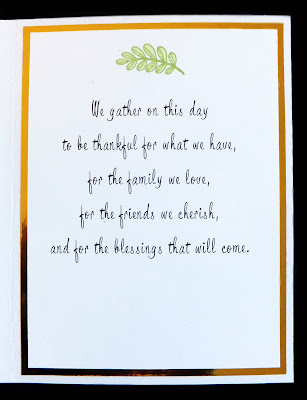 We gather on this day
to be thankful for what we have,
for the family we love,
for the friends we cherish,
and for the blessings that will come.